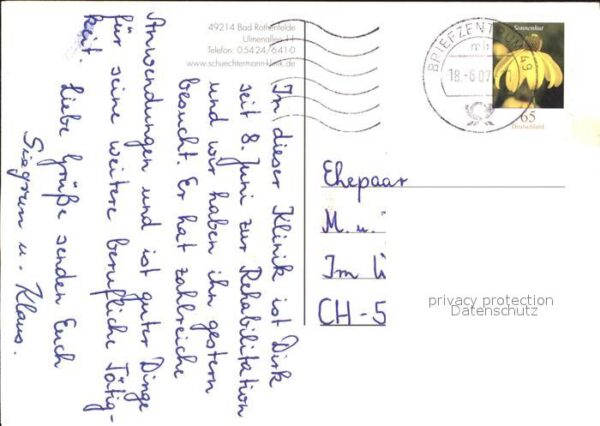 49214 Bad Rothenfelde
Ulmenallee 11
Telefon: 05424/641-0
www.schuechtermann-klinik.de
In dieser Klinik ist Dirk
seit 8. Juni zur Rehabilitation
und wir haben ihn gestern
besucht. Er hat zahlreiche
Anwendungen und ist guter Dinge
für seine weitere berufliche Tätig-
keit. Liebe Grüße senden Euch
Siegrun u. Klaus.
BRIEFZENTRUM 49
mb
18.-6.07
Sonnenhut
65
Deutschland
Ehepaar
M. u.
Im
CH-5
privacy protection
Datenschutz